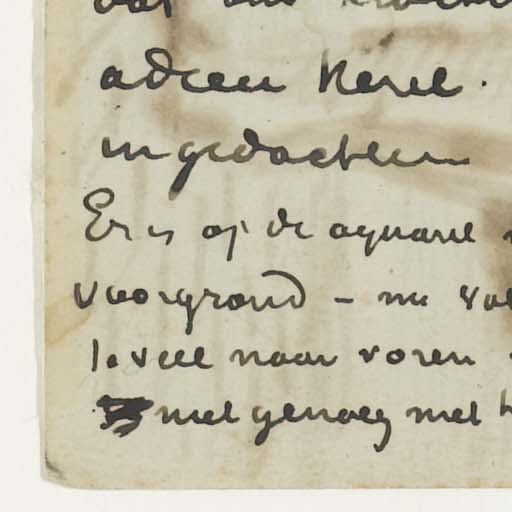 adieu kerel.
in gedachten
Er is op de aquarel
voorgrond – nu
te veel naar voren
niet genoeg met